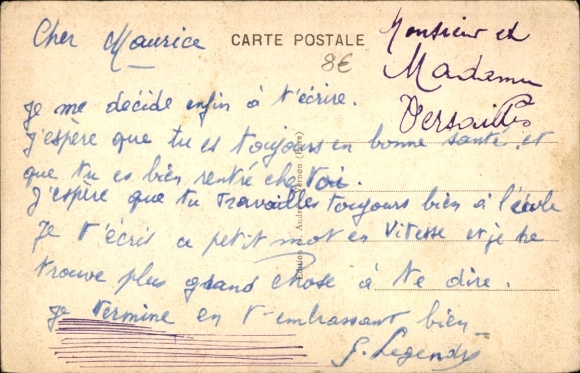 Cher Maurice
CARTE POSTALE
8€
Monsieur et
Madame
Versailles
Je me décide enfin à t'écrire.
J'espère que tu es toujours en bonne santé et
que tu es bien rentré chez toi.
J'espère que tu travailles toujours bien à l'école
Je t'écris ce petit mot en vitesse et je ne
trouve plus grand chose à te dire.
Je termine en t-embrassant bien
G. Legendre
Edition Andre Vernon (Eure)